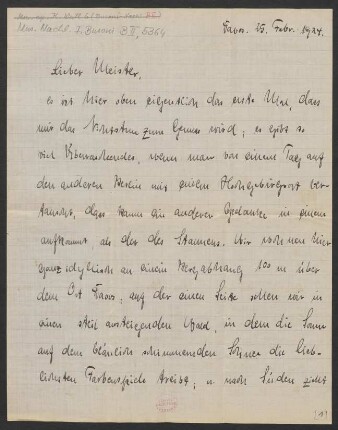 Mus. Nachl. F. Busoni B II, 5364
Davos. 25. Febr. 1924.
Lieber Meister,
es ist hier oben eigentlich das erste Mal, dass
mir das Nichtstun zum Genuss wird; es gibt so
viel Überraschendes, wenn man von einem Tag auf
den anderen Berlin mit einem Hochgebirgsort ver-
tauscht, dass kaum ein anderer Gedanke in einem
aufkommt als der des Staunens. Wir wohnen hier
ganz idyllisch an einem Bergabhang 100 m über
dem Ort Davos; auf der einen Seite sehen wir in
einen steil ansteigenden Wald, in dem die Sonne
auf dem bläulich schimmernden Schnee die lieb-
lichsten Farbenspiele treibt; u nach Süden zieht